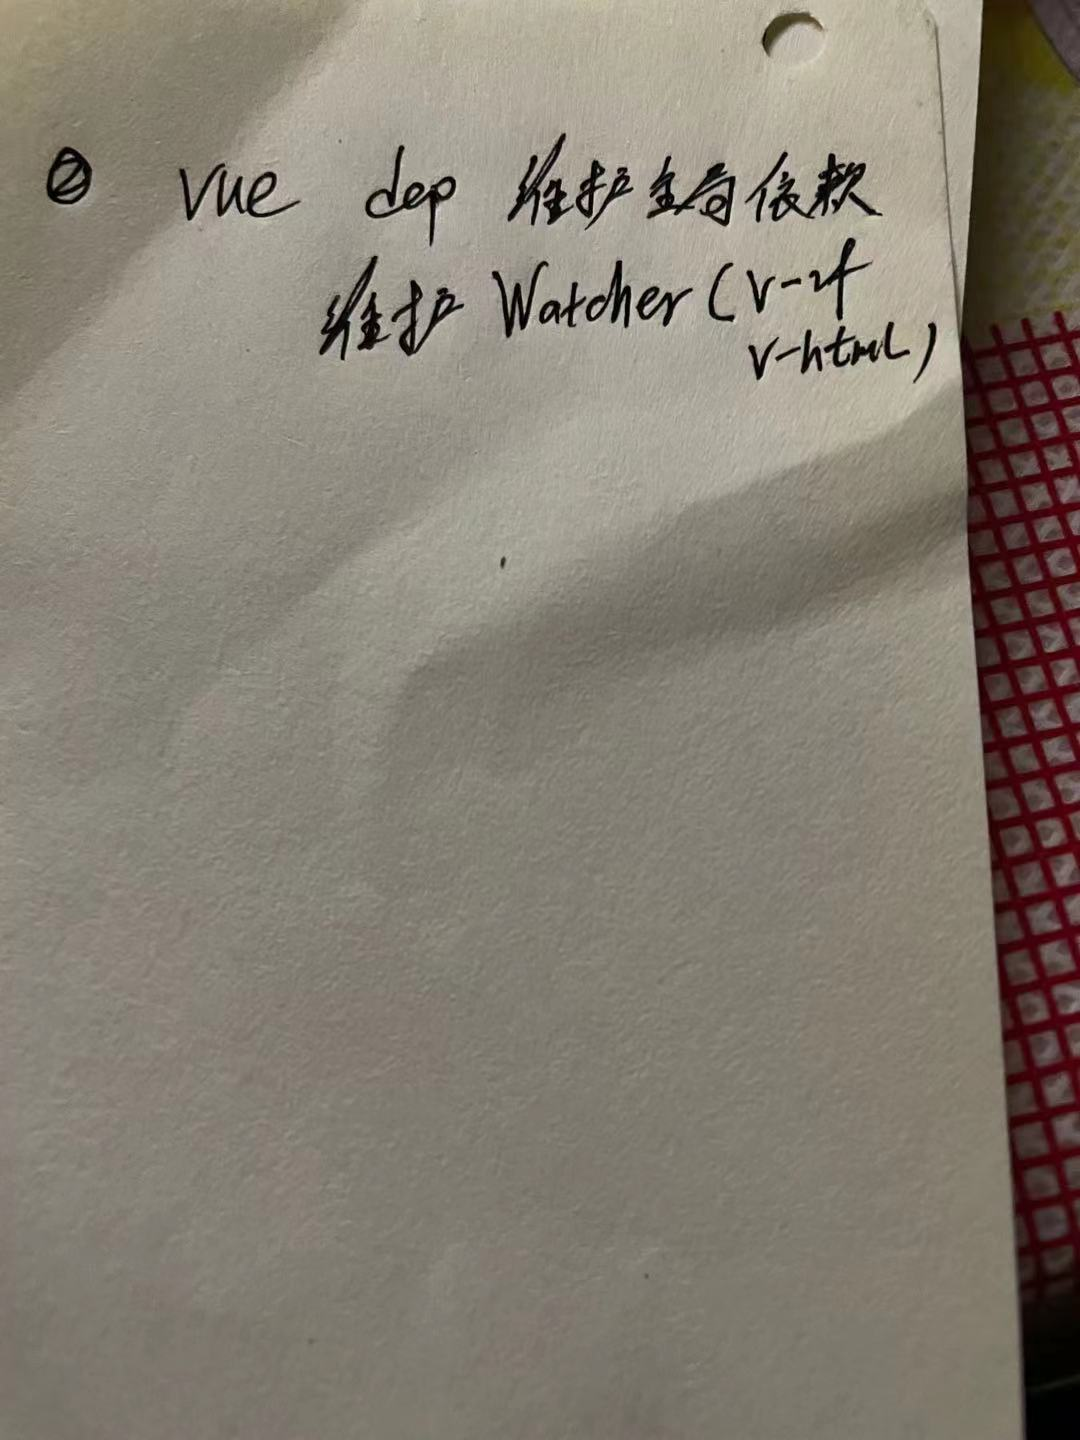 ② vue dep 维护全局依赖
维护 Watcher (v-if
v-html)